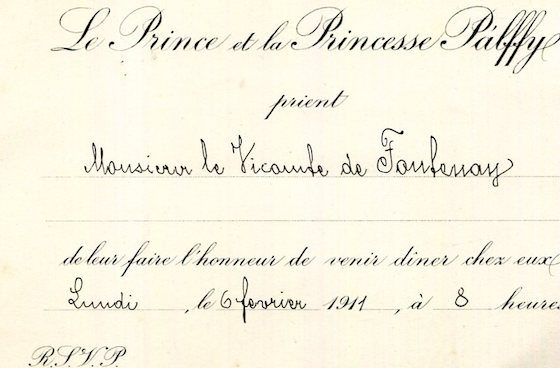 Le Prince et la Princesse Pálffy
prient
Monsieur le Vicomte de Fontenay
de leur faire l'honneur de venir dîner chez eux
Lundi , le 6 fevrier 1911 , à 8 heures
R.S.V.P.